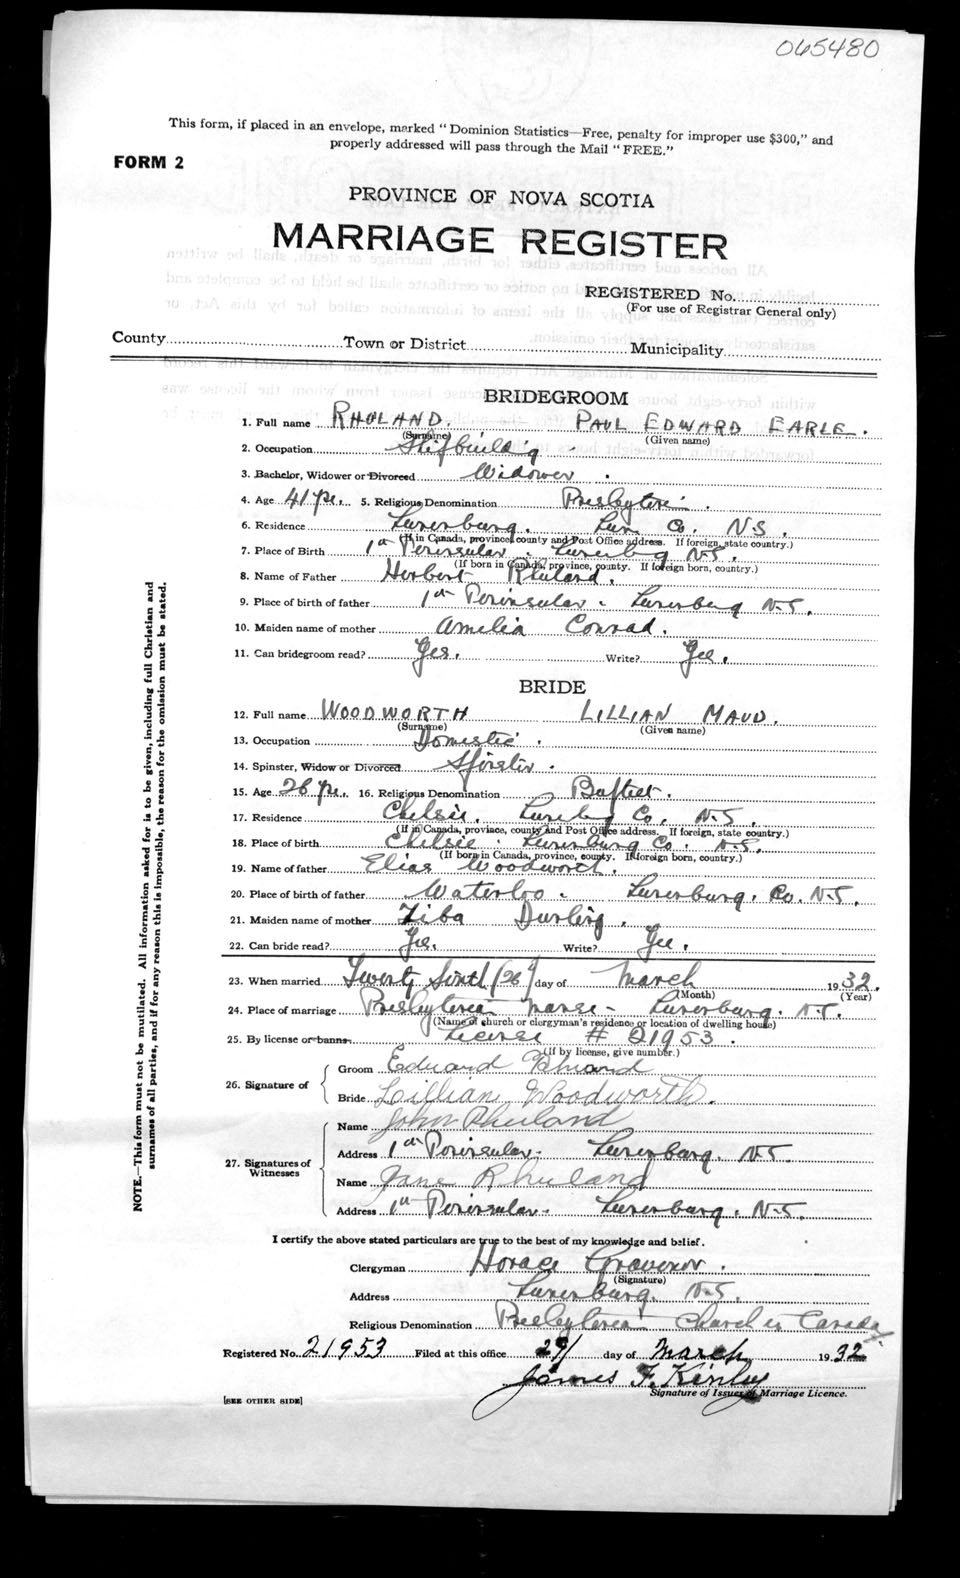 065480
This form, if placed in an envelope, marked "Dominion Statistics—Free, penalty for improper use $300," and
properly addressed will pass through the Mail "FREE."
FORM 2
PROVINCE OF NOVA SCOTIA
MARRIAGE REGISTER
REGISTERED No.
(For use of Registrar General only)
County Town or District Municipality
BRIDEGROOM
1. Full name RHULAND. PAUL EDWARD EARLE.
(Surname) (Given name)
2. Occupation Shipbuildg
3. Bachelor, Widower or Divorced Widower.
4. Age 41 yrs. 5. Religious Denomination Presbyteri.
6. Residence Lunenburg. Lun Co. N.S.
(If in Canada, province, county and Post Office address. If foreign, state country.)
7. Place of Birth 1st Peninsular. Lunenbg N.S.
(If born in Canada, province, county. If foreign born, country.)
8. Name of Father Herbert Rhuland.
9. Place of birth of father 1st Peninsular. Lunenburg N.S.
10. Maiden name of mother Amelia Conrad.
11. Can bridegroom read? Yes. Write? Yes.
BRIDE
12. Full name WOODWORTH LILLIAN MAUD.
(Surname) (Given name)
13. Occupation Domestic.
14. Spinster, Widow or Divorced Spinster.
15. Age 26 yrs. 16. Religious Denomination Baptist.
17. Residence Chelsie. Lunenbg Co. N.S.
(If in Canada, province, county and Post Office address. If foreign, state country.)
18. Place of birth Chelsie. Lunenburg Co. N.S.
(If born in Canada, province, county. If foreign born, country.)
19. Name of father Elias Woodworth.
20. Place of birth of father Waterloo. Lunenburg. Co. N.S.
21. Maiden name of mother Ziba Durling.
22. Can bride read? Yes. Write? Yes.
23. When married Twenty Sixth (26) day of March 1932.
(Month) (Year)
24. Place of marriage Presbyterian Manse - Lunenburg. N.S.
(Name of church or clergyman's residence or location of dwelling house)
25. By license or banns License # 21953.
(if by license, give number.)
26. Signature of
Groom Edward Rhuland
Bride Lillian Woodworth.
27. Signatures of Witnesses
Name John Rhuland
Address 1st Peninsular. Lunenburg. N.S.
Name Jane Rhuland
Address 1st Peninsular. Lunenburg. N.S.
I certify the above stated particulars are true to the best of my knowledge and belief.
Clergyman Horace Grovenor.
(Signature)
Address Lunenburg. N.S.
Religious Denomination Presbyterian Church in Canada
Registered No. 21953 Filed at this office 29 day of March 1932
James F. Kinley
Signature of Issuer of Marriage Licence.
[SEE OTHER SIDE]
NOTE.—This form must not be mutilated. All information asked for is to be given, including full Christian and
surnames of all parties, and if for any reason this is impossible, the reason for the omission must be stated.